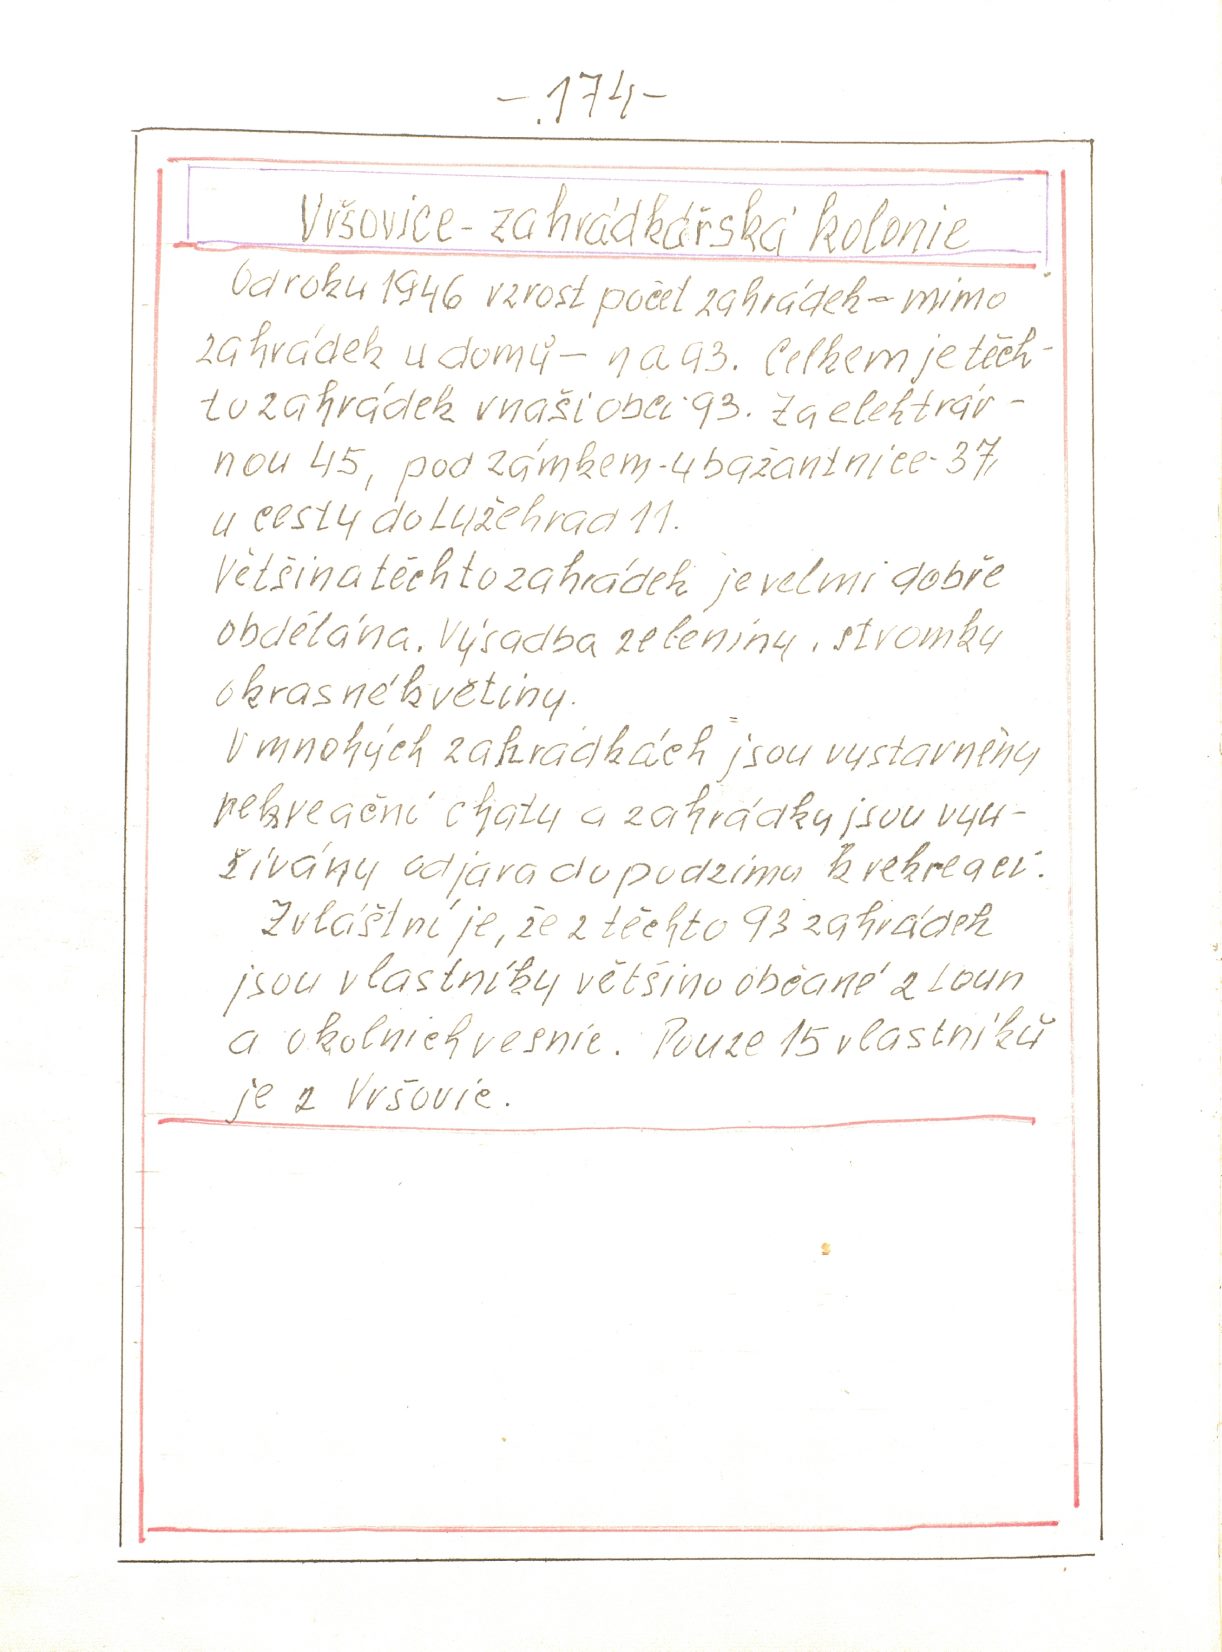 - 174 -
Vršovice - zahrádkářská kolonie
Od roku 1946 vzrost počet zahrádek - mimo
zahrádek u domů - na 93. Celkem je těch-
to zahrádek v naší obci 93. Za elektrár-
nou 45, pod zámkem - u bažantnice - 37,
u cesty do Lužehrad 11.
Většina těchto zahrádek je velmi dobře
obdělána. Výsadba zeleniny, stromky
okrasné květiny.
V mnohých zahrádkách jsou vystavněny
rekreační chaty a zahrádky jsou vyu-
žívány od jara do podzimu k rekreaci.
Zvláštní je, že z těchto 93 zahrádek
jsou vlastníky většino občané z Loun
a okolních vesnic. Pouze 15 vlastníků
je z Vršovic.